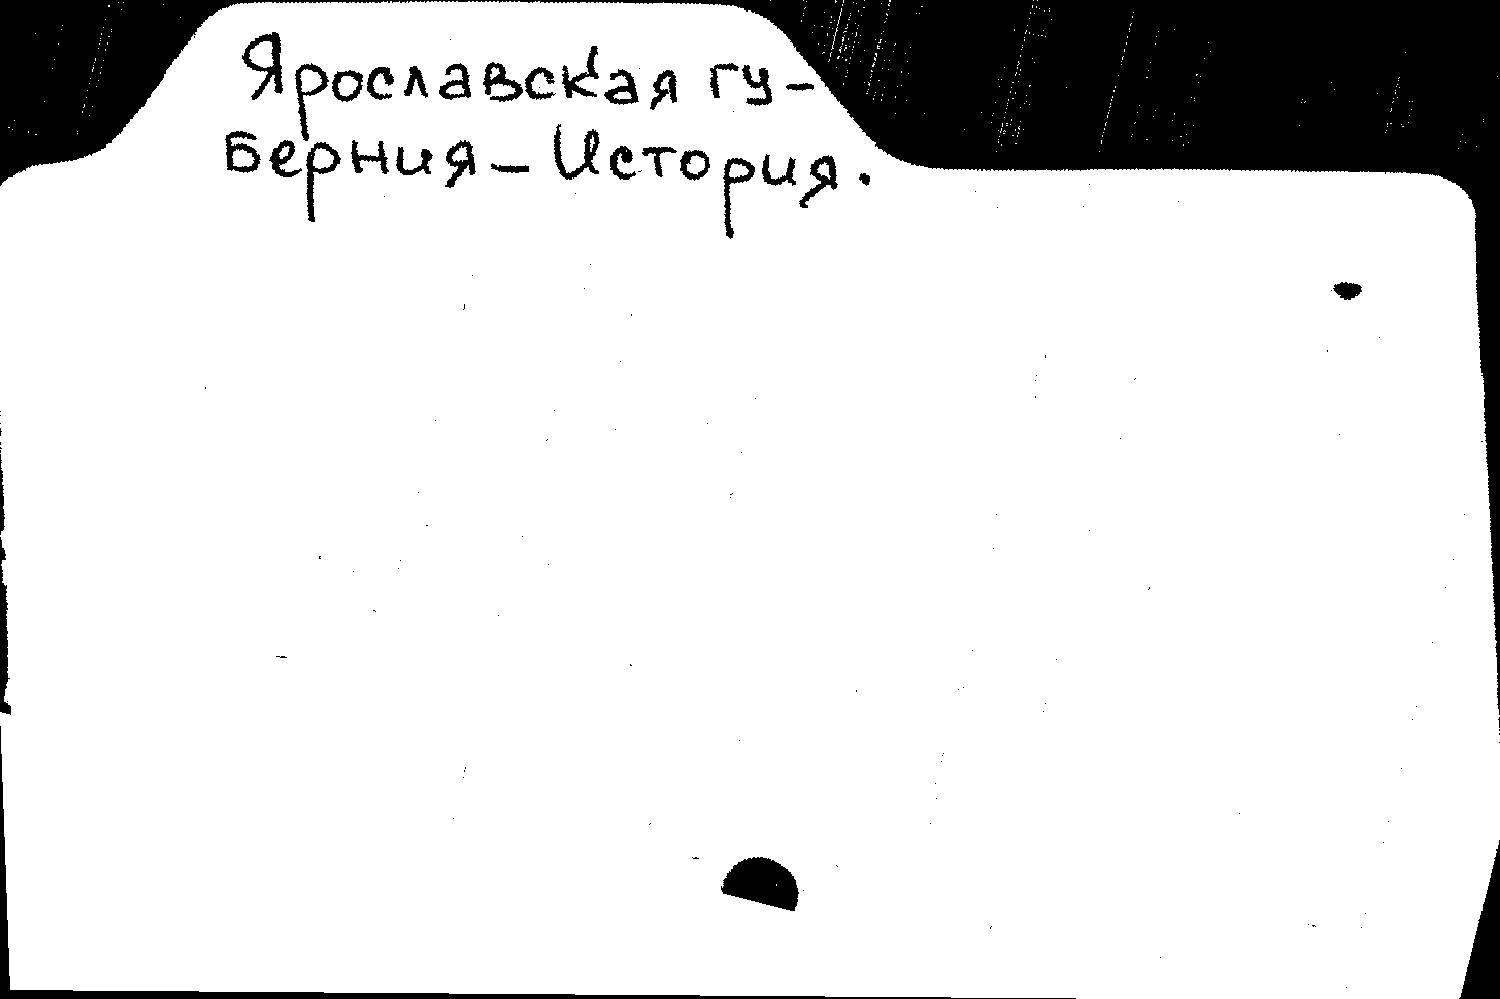 Ярославская гу-
берния – История.